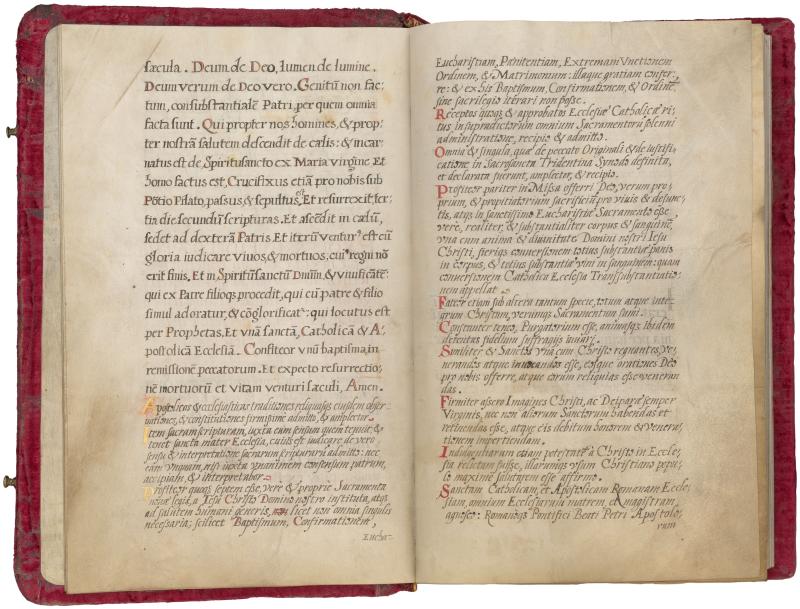 sæcula. Deum de Deo, lumen de lumine.
Deum verum de Deo vero. Genitũ non fac-
tum, consubstantialẽ Patri, per quem omnia
facta sunt. Qui propter nos homines, & prop-
ter nostrã salutem descendit de cælis: & incar-
natus est de Spiritusancto ex Maria virgine. Et
homo factus est, Crucifixus etiã pro nobis sub
Põtio Pilato, passus, & sepultus est, Et resurrexit ter-
tia die secundũ scripturas. Et ascẽdit in cælũ,
sedet ad dexterã Patris. Et iterũ venturus est cũ
gloria iudicare viuos, & mortuos, cuius regni nõ
erit finis. Et in Spiritũ sanctũ Dnũm, & viuificãtẽ:
qui ex Patre filioqз procedit, qui cũ patre & filio
simul adoratur, & cõglorificatur: qui locutus est
per Prophetas. Et vnã sanctã, Catholicã & A-
postolicã Ecclesiã. Confiteor vnũ baptisma in
remissionẽ peccatorum. Et expecto resurrectio-
nẽ mortuorũ et vitam venturi sæculi, Amen.
Apostolicas & ecclesiasticas traditiones reliquasqз eiusdem obser-
uationes, & constitutiones firmissime admitto, & amplector.
Item sacram scripturam, iuxta eum sensum quem tenuit, &
tenet sancta mater Ecclesia, cuius est iudicare de vero
sensu & interpretatione sacrarum scripturarũ admitto: nec
eam vnquam, nisi iuxta vnanimem consensum patrum,
accipiam, & interpretabor.
Profiteor quoqз septem esse, vere & proprie Sacramenta
nouæ legis, a Iesu Christo Domino nostro instituta, atqз
ad salutem humani generis, licet non omnia singulis
necessaria; scilicet Baptismum, Confirmationem,
Eucha-
Eucharistiam, Pænitentiam, Extremam Vnctionem
Ordinem, & Matrimonium: illaque gratiam confer-
re: & ex his Baptismum, Confirmationem, & Ordinẽ,
sine sacrilegio iterari non posse.
Receptos quoqз & approbatos Ecclesiæ Catholicæ ri-
tus, in supradictorum omnium Sacramentorũ solenni
administratione, recipio & admitto.
Omnia & singula, quæ de peccato Originali & de iustifi-
catione in Sacrosancta Tridentina Synodo definita,
et declarata fuerunt, amplector, & recipio.
Profiteor pariter in Missa offerri Deo, verum pro-
prium, & propitiatorium sacrificiũ pro viuis & defunc-
tis, atqз in sanctissimo Eucharistiæ Sacramento esse
vere, realiter, & substantialiter corpus & sanguinẽ,
vna cum anima & diuinitate Domini nostri Iesu
Christi, fieriqз conuersionem totius substantiæ panis
in corpus, & totius substantiæ vini in sanguinem: quam
conuersionem Catholica Ecclesia Transsubstantiatio-
nem appellat.
Fateor etiam sub altera tantum specie, totum atque inte-
grum Christum, verumqз Sacramentum sumi.
Constanter teneo, Purgatorium esse, animasqз ibidem
detentas fidelium suffragijs iuuari.
Similiter & Sanctos vna cum Christo regnantes, ve-
nerandos atque inuocandos esse, eosque orationes Deo
pro nobis offerre, atque eorum reliquias esse veneran-
das.
Firmiter assero Imagines Christi, ac Deiparæ semper
Virginis, nec non aliorum Sanctorum habendas et
retinendas esse, atque eis debitum honorem & venera-
tionem impertiendam.
Indulgentiarum etiam potestatẽ à Christo in Eccle-
sia relictam fuisse, illarumqз vsum Christiano popu-
lo maxime salutarem esse affirmo.
Sanctam Catholicam, et Apostolicam Romanam Eccle-
siam, omnium Ecclesiarum matrem, et magistram
agnosco: Romanoqз Pontifici Beati Petri Apostolo-
rum